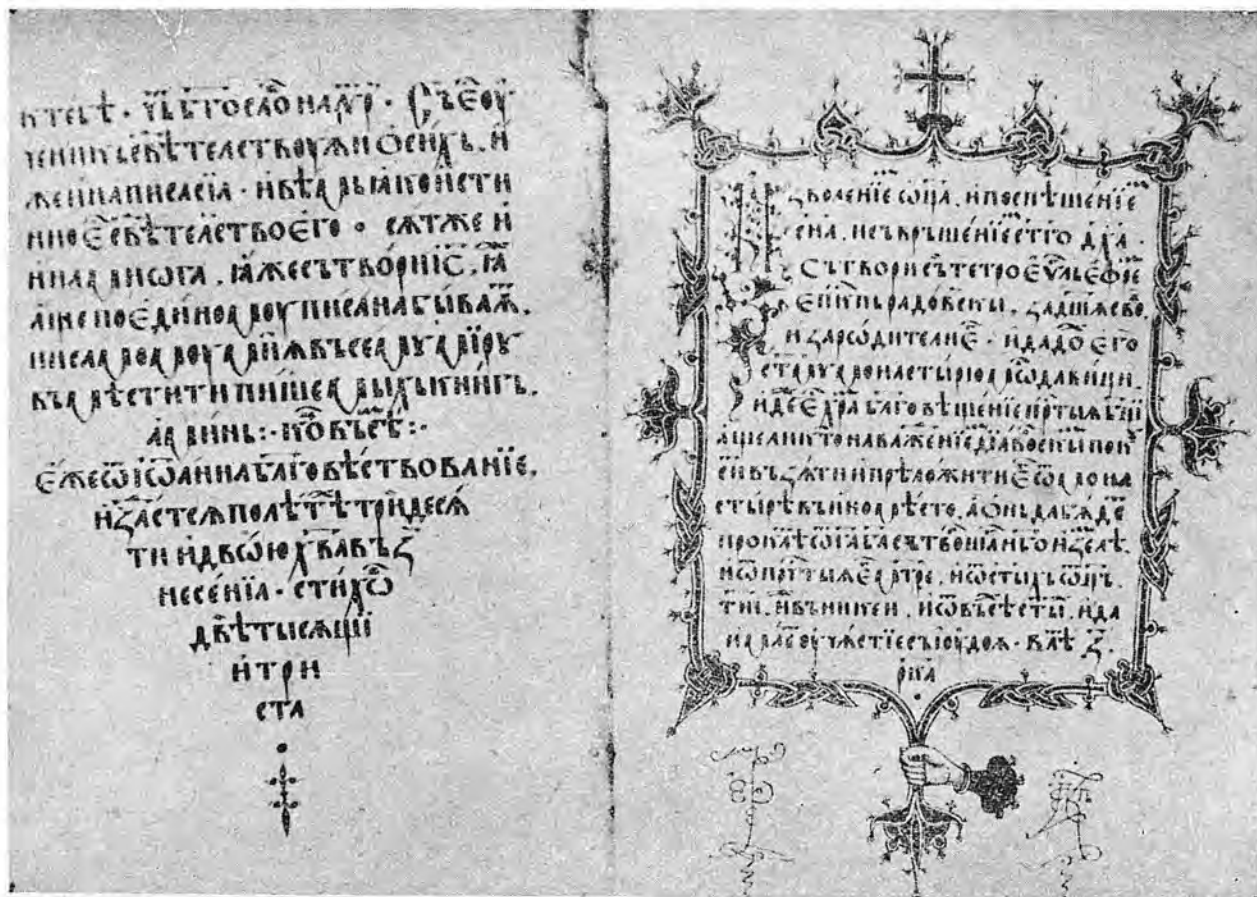 ннкъ свѣтелствоуѫи ѡ сихъ. и
жеи написа сїа. и вѣмы ꙗко исти
нно е҆ свѣтелство его. сѫт же и
ина многа, ꙗже сътвори і҃с. ꙗ
аще по единомоу писана бываѫ,
ни самомоу мнѫ въсемꙋ мїрꙋ
въмѣстити пишемыѫ книгъ.
аминь:·
Еже ѿ іѡанна благовѣствованїе,
изⷣастсѧ по лѣтѣ тридесѧ
ти и двѡю х҃ва въз
несенїа. стихѡ
двѣ тысѧщи
и три
ста
Изволенїе ѡц҃а. и поспѣшенїе
сн҃а. и съвръшенїе ст҃го дх҃а.
Сътвори сѫ тетроеѵⷢль ефре
еппⷭкпь радовскы, за дш҃ѫ свою
и за родителие. и дадѡ его
ст҃муꙋ монастырю молдавици.
идеже е храⷨ благовѣщенїе прⷱтыѫ бц҃ѫ
аще ли кто на важенїе дїаволскы покꙋ
си възѧти и прѣложити е ѿ мона
стырѣ въ ино мѣсто, а ѡнь да бѫде
проклѧ ѿ г҃а б҃а сътворшаго нб҃о и землѣ.
и ѿ прⷱтыѫ е мт҃ре, и ѿ ст҃ыхъ ѿць
т҃иі, иⷤ въ никеи, и ѿ въсѣ ст҃ы, и да
има оучѧстїе съ іоудоѫ. в лѣ ҂з҃
рк҃а